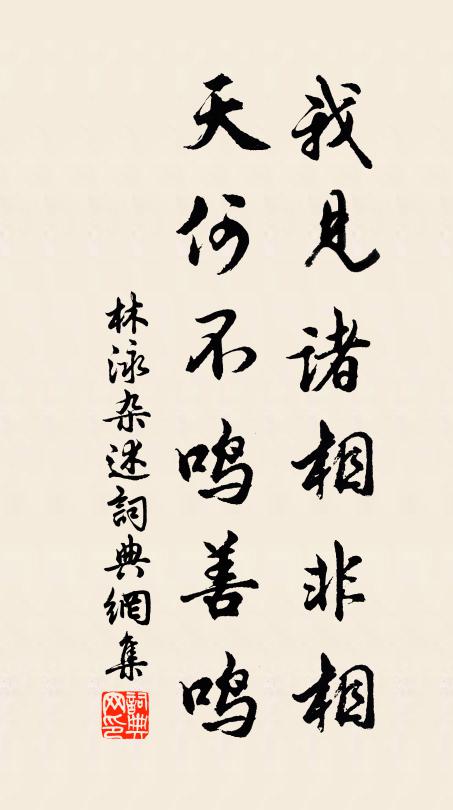 我見诸相非相
天何不鸣善鸣
林泳杂述詞典網集
詞典网印